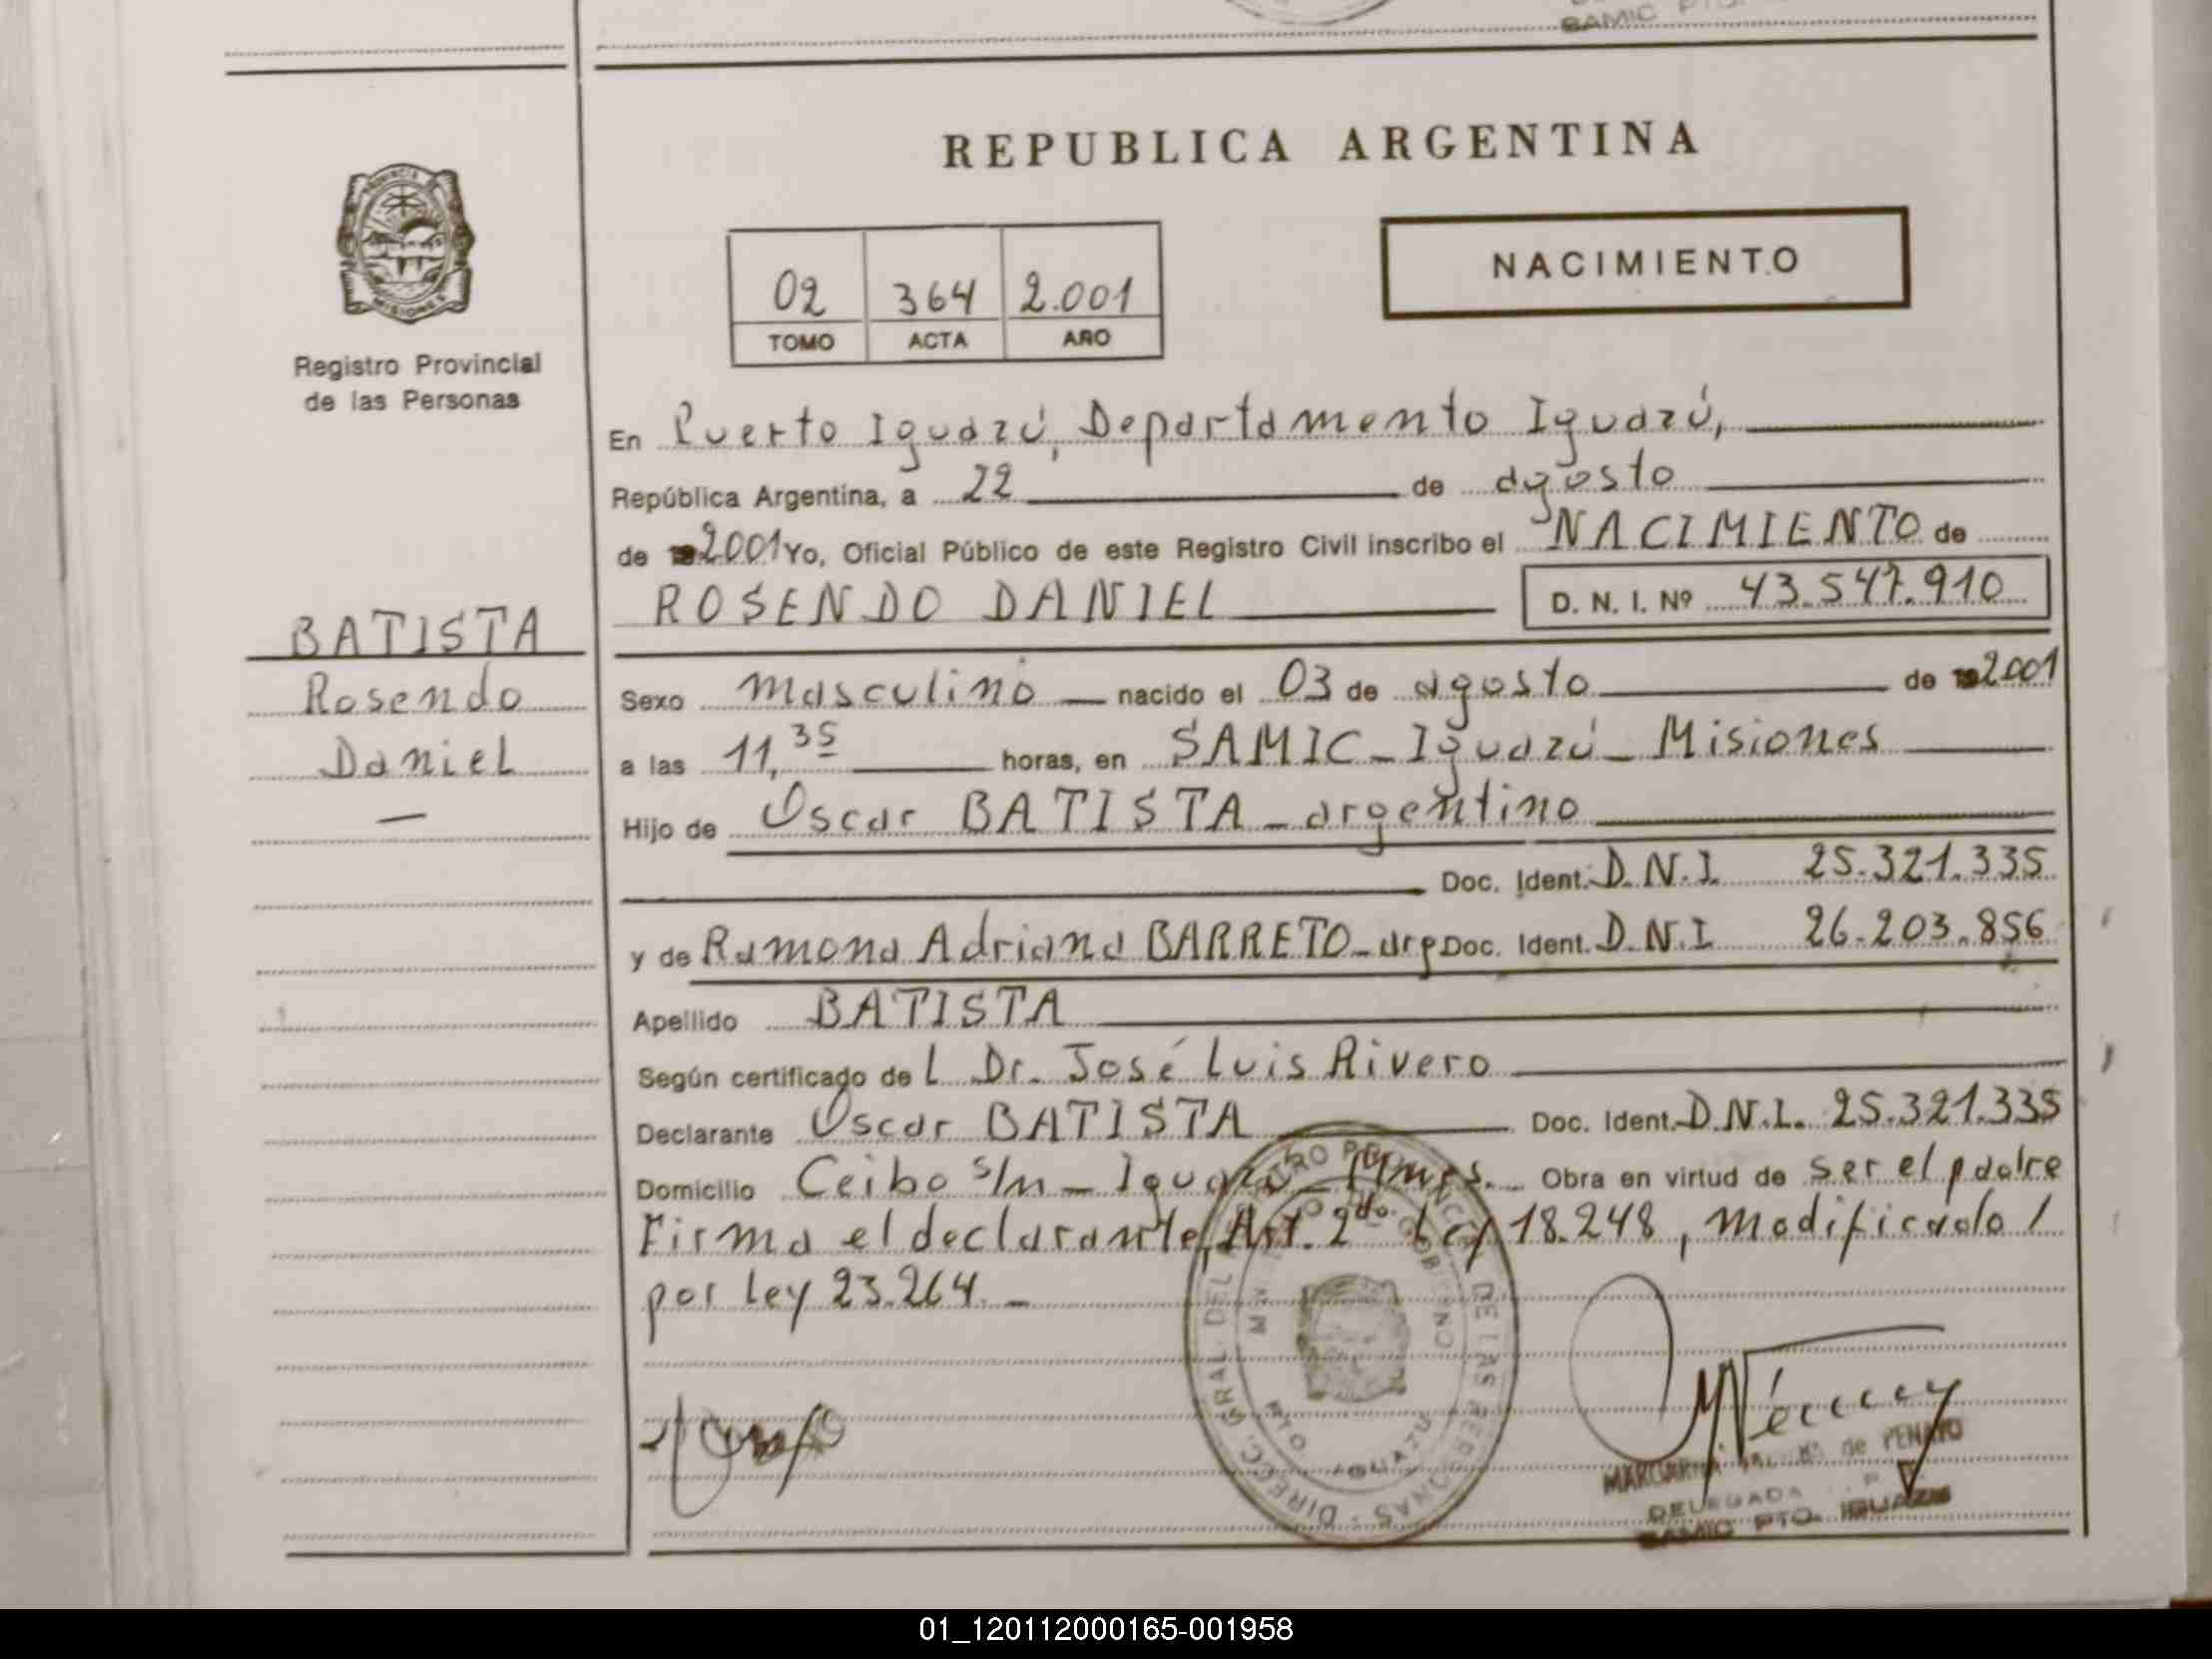 SAMIC PTO.
REPUBLICA ARGENTINA
PROVINCIA DE
MISIONES
Registro Provincial
de las Personas
02 364 2.001
TOMO ACTA AÑO
NACIMIENTO
En Puerto Iguazú, Departamento Iguazú,
República Argentina, a 22 de agosto
de 2001 Yo, Oficial Público de este Registro Civil inscribo el NACIMIENTO de
ROSENDO DANIEL D. N. I. Nº 43.547.910
BATISTA
Rosendo
Daniel
Sexo masculino nacido el 03 de agosto de 2001
a las 11,35 horas, en SAMIC - Iguazú - Misiones
Hijo de Oscar BATISTA - argentino
Doc. Ident. D.N.I 25.321.335
y de Ramona Adriana BARRETO - arg Doc. Ident. D.N.I 26.203.856
Apellido BATISTA
Según certificado de L Dr. José Luis Rivero
Declarante Oscar BATISTA Doc. Ident. D.N.I. 25.321.335
Domicilio Ceibo s/n - Iguazú - Mnes. Obra en virtud de ser el padre
Firma el declarante, Art. 2do. Ley 18.248, modificado /
por Ley 23.264. -
DIRECC. GRAL. DEL REGISTRO PROVINCIAL DE LAS PERSONAS
PTO IGUAZU
de PENAYO
DELEGADA
SAMIC PTO. IGUAZU
01_120112000165-001958